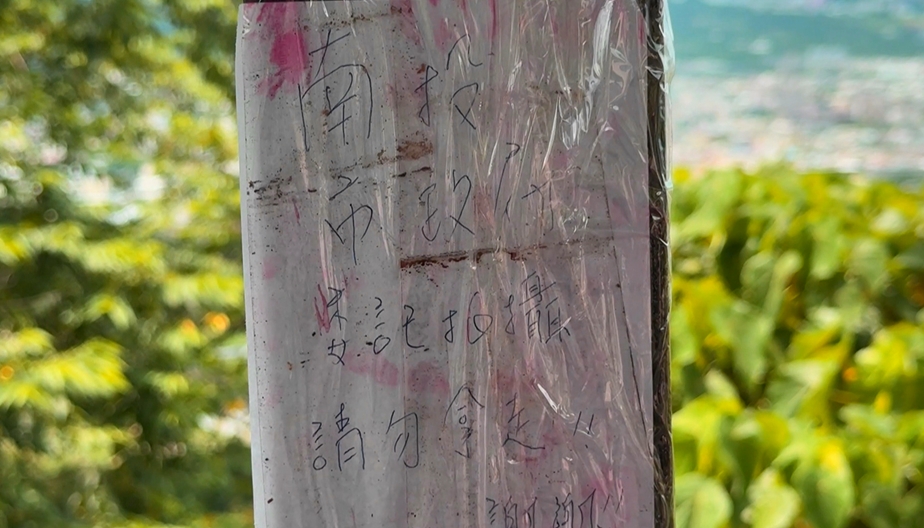 南投
市政府
委託拍攝
請勿拿走!!
謝謝!!